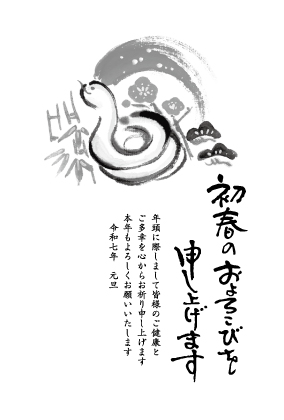 初春のおよろこびを
申し上げます
年頭に際しまして皆様のご健康と
ご多幸を心からお祈り申し上げます
本年もよろしくお願いいたします
令和七年　元旦